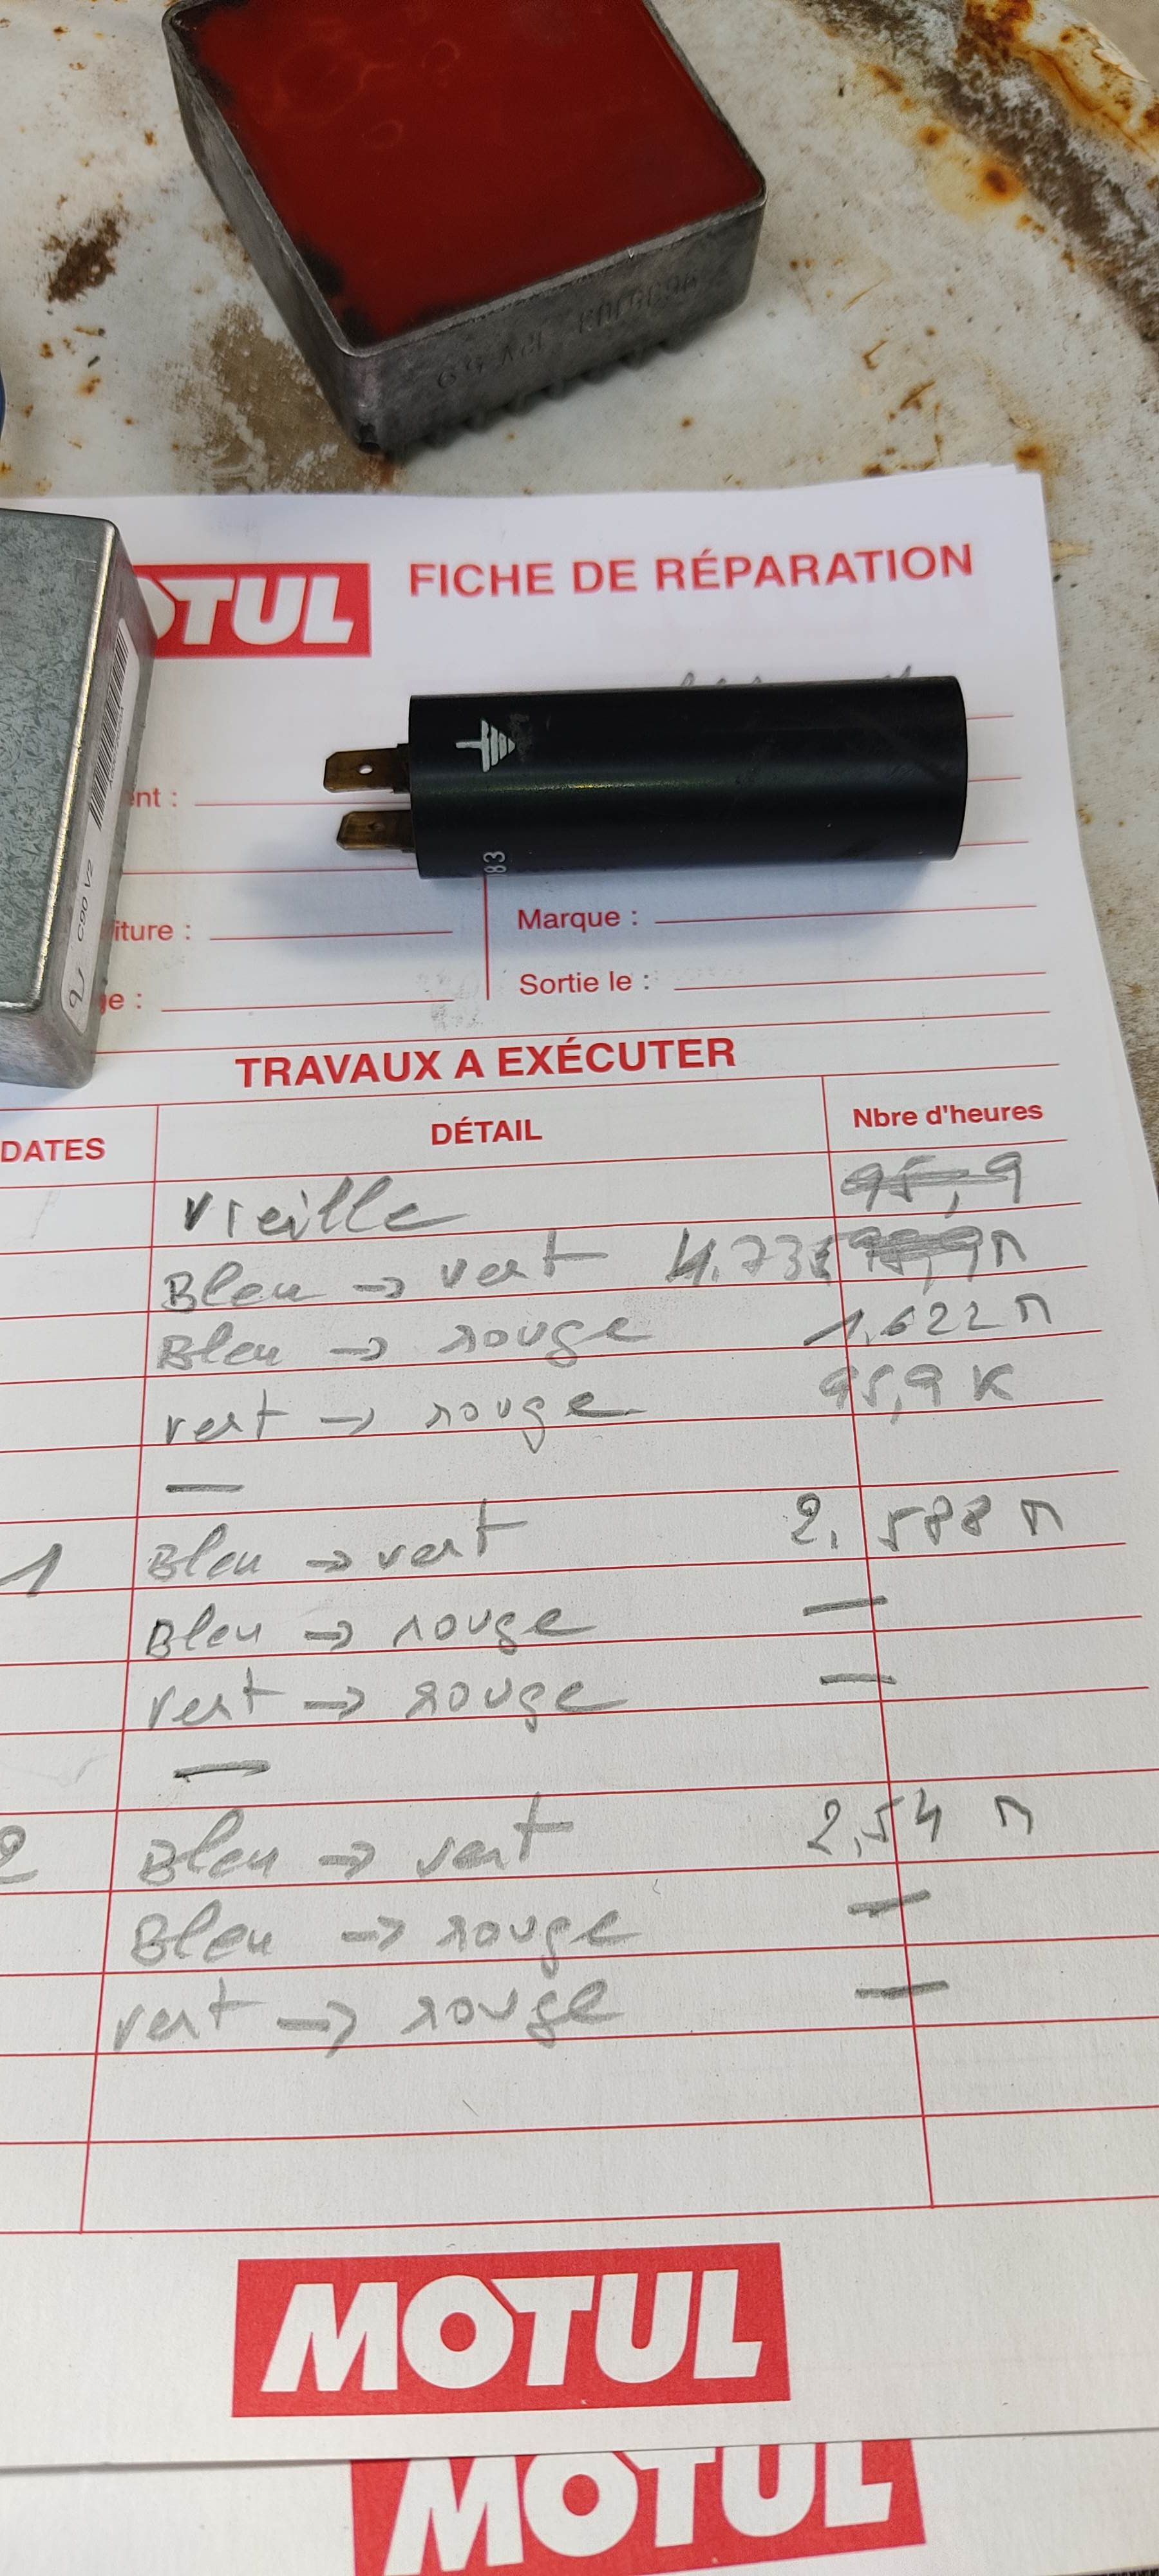 OTUL FICHE DE RÉPARATION
ent :
83
C90 V2
iture : Marque :
ge : Sortie le :
TRAVAUX A EXÉCUTER
DATES DÉTAIL Nbre d'heures
Vieille 95,9
Bleu → vert 4.73
Bleu → rouge 1.622 M
vert → rouge 95,9 K
—
1 Bleu → vert 2.588 M
Bleu → rouge —
vert → rouge —
—
2 Bleu → vert 2,54 M
Bleu → rouge —
vert → rouge —
MOTUL
MOTUL